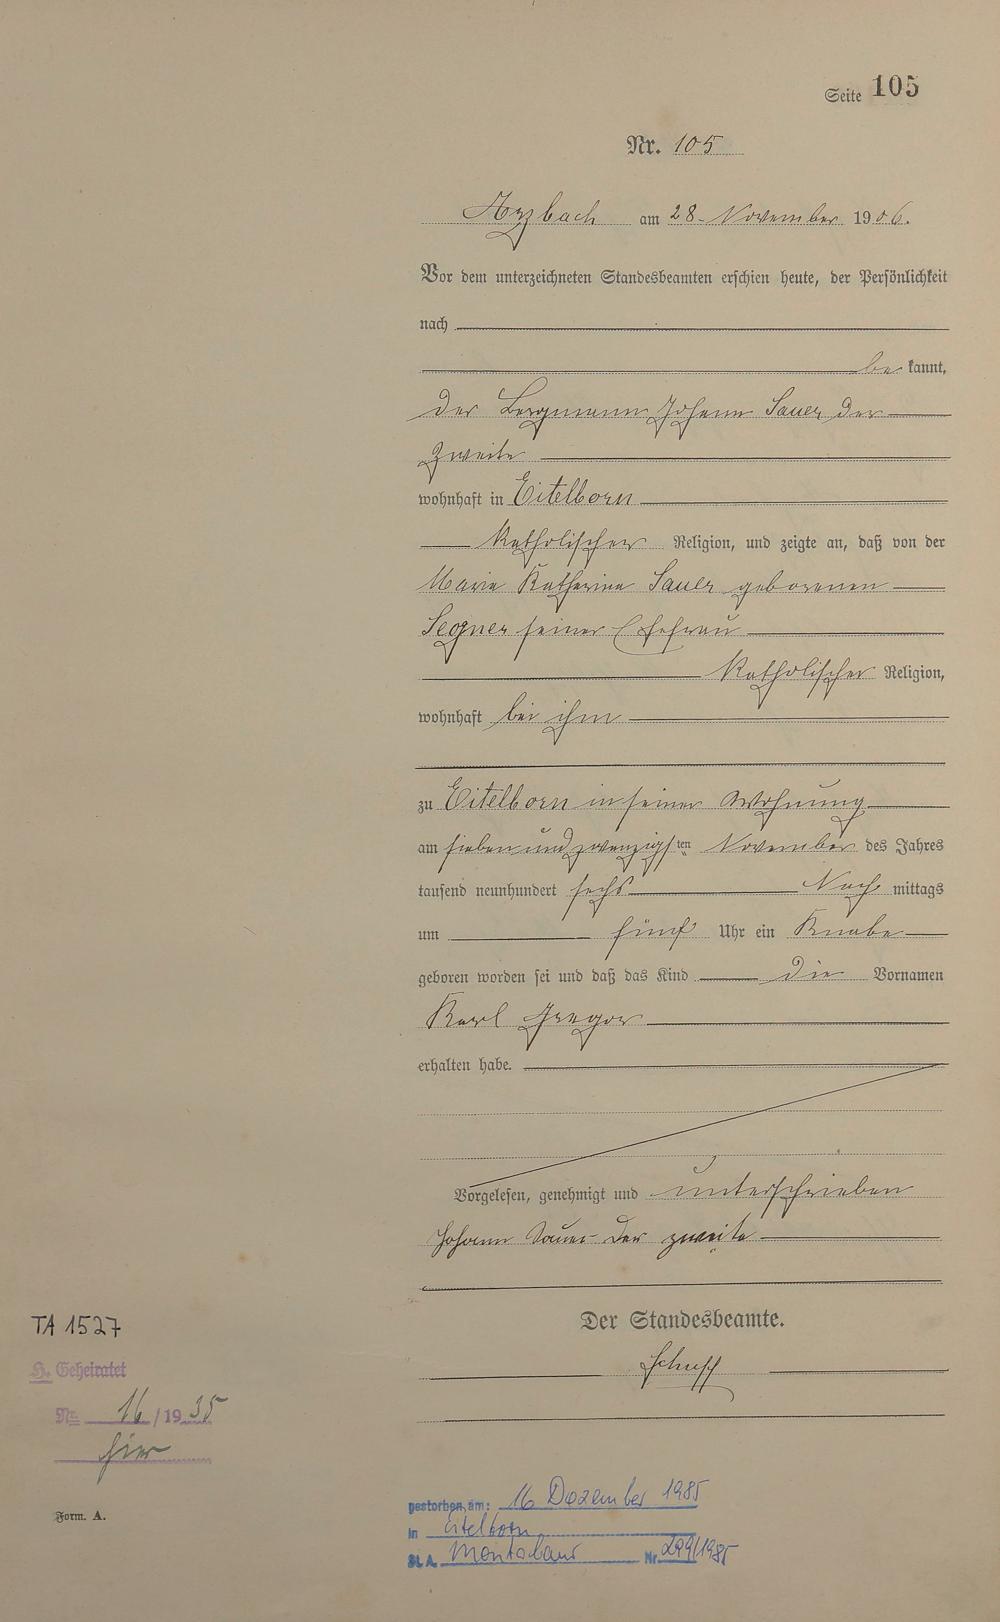 Seite 105
Nr. 105
Arzbach am 28. November 1906.
Vor dem unterzeichneten Standesbeamten erschien heute, der Persönlichkeit
nach
be kannt,
der Bergmann Johann Sauer der
Zweite
wohnhaft in Eitelborn
katholischer Religion, und zeigte an, daß von der
Marie Katharina Sauer geborenen
Segner seiner Ehefrau
katholischer Religion,
wohnhaft bei ihm
zu Eitelborn in seiner Wohnung
am sieben und zwanzigsten November des Jahres
tausend neunhundert sechs Nach mittags
um fünf Uhr ein Knabe
geboren worden sei und daß das Kind die Vornamen
Karl Gregor
erhalten habe.
Vorgelesen, genehmigt und unterschrieben
Johann Sauer der zweite
Der Standesbeamte.
TA 1527
H. Geheiratet
Nr. 16/1935
hier
Form. A.
gestorben am: 16 Dezember 1985
in Eitelborn
St. A. Montabaur Nr. 299/1985